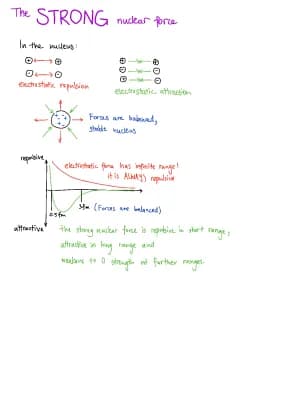 The STRONG nuclear force
In the nucleus:
⊕ ⊕
⊖ ⊖
electrostatic repulsion
⊕ ⊕
⊖ ⊖
⊕ ⊖
electrostatic attraction
Forces are balanced,
stable nucleus
repulsive
electrostatic force has infinite range!
it is ALWAYS repulsive
0.5fm
3fm (Forces are balanced)
attractive
The strong nuclear force is repulsive in short range,
attractive in long range and
weakens to 0 strength at further ranges.